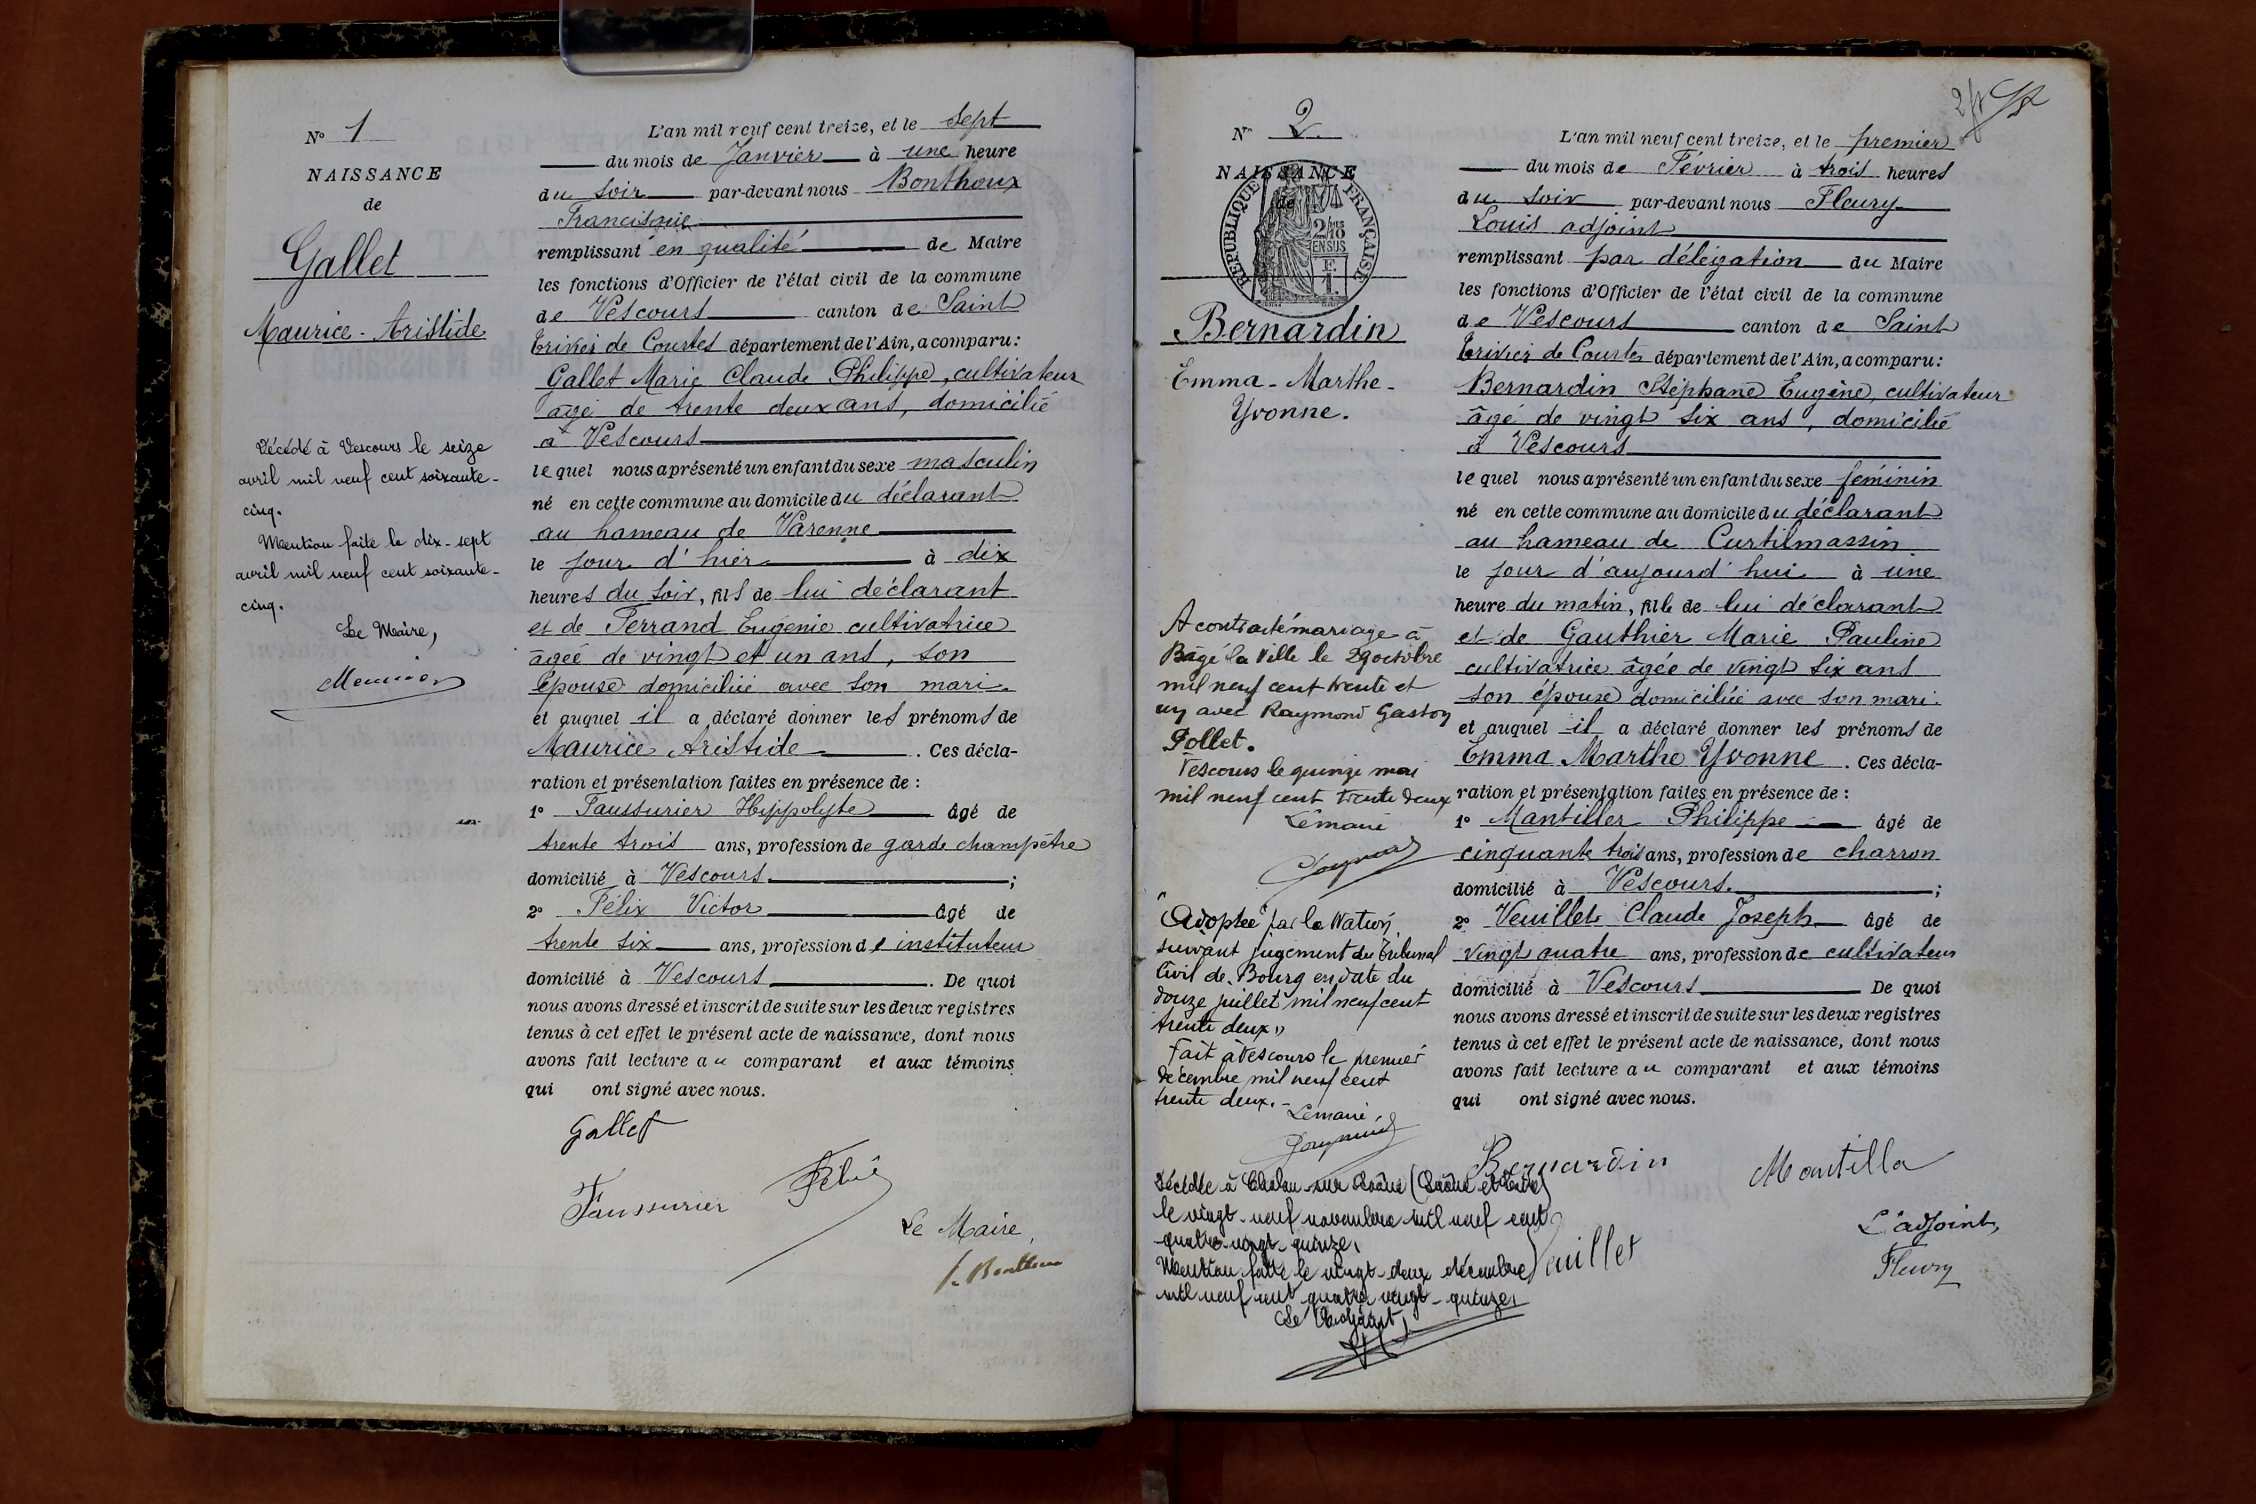 N° 1
NAISSANCE
de
Gallet
Maurice - Aristide
Décédé à Vescours le seize
avril mil neuf cent soixante-
cinq.
Mention faite le dix-sept
avril mil neuf cent soixante-
cinq.
Le Maire,
L'an mil neuf cent treize, et le sept
du mois de Janvier à une heure
du soir par-devant nous Bonthoux
Francisque
remplissant en qualité de Maire
les fonctions d'Officier de l'état civil de la commune
de Vescours canton de Saint
Trivier de Courtes département de l'Ain, a comparu :
Gallet Marie Claude Philippe, cultivateur
âgé de trente deux ans, domicilié
à Vescours
lequel nous a présenté un enfant du sexe masculin
né en cette commune au domicile du déclarant
au hameau de Varenne
le jour d'hier à dix
heures du soir, fils de lui déclarant
et de Ferrand Eugénie cultivatrice
âgée de vingt et un ans, son
épouse domiciliée avec son mari.
et auquel il a déclaré donner les prénoms de
Maurice Aristide . Ces décla-
ration et présentation faites en présence de :
1° Faussurier Hippolyte âgé de
trente trois ans, profession de garde champêtre
domicilié à Vescours ;
2° Félix Victor âgé de
trente six ans, profession de instituteur
domicilié à Vescours . De quoi
nous avons dressé et inscrit de suite sur les deux registres
tenus à cet effet le présent acte de naissance, dont nous
avons fait lecture au comparant et aux témoins
qui ont signé avec nous.
Gallet
Faussurier Félix
Le Maire,
f. Bonthoux
2
N° 2
NAISSANCE
de
RÉPUBLIQUE FRANÇAISE
2/10
EN SUS
Bernardin
Emma - Marthe -
Yvonne.
A contracté mariage à
Bâgé la Ville le 29 octobre
mil neuf cent trente et
un avec Raymond Gaston
Pollet.
Vescours le quinze mai
mil neuf cent trente deux
Le maire
"Adoptée par la Nation,
suivant jugement du Tribunal
Civil de Bourg en date du
douze juillet mil neuf cent
trente deux"
Fait à Vescours le premier
décembre mil neuf cent
trente deux.-
Le maire,
Décédée à Chalon-sur-Saône (Saône et Loire)
le vingt-neuf novembre mil neuf cent
quatre-vingt-quinze.
Mention faite le vingt-deux décembre
mil neuf cent quatre vingt-quinze.
L'an mil neuf cent treize, et le premier
du mois de Février à trois heures
du soir par-devant nous Fleury
Louis adjoint
remplissant par délégation du Maire
les fonctions d'Officier de l'état civil de la commune
de Vescours canton de Saint
Trivier de Courtes département de l'Ain, a comparu :
Bernardin Stéphane Eugène, cultivateur
âgé de vingt six ans, domicilié
à Vescours
lequel nous a présenté un enfant du sexe féminin
né en cette commune au domicile du déclarant
au hameau de Curtilmassin
le jour d'aujourd'hui à une
heure du matin, fille de lui déclarant
et de Gauthier Marie Pauline
cultivatrice âgée de vingt six ans
son épouse domiciliée avec son mari.
et auquel il a déclaré donner les prénoms de
Emma Marthe Yvonne . Ces décla-
ration et présentation faites en présence de :
1° Mantiller Philippe âgé de
cinquante trois ans, profession de charron
domicilié à Vescours ;
2° Veuillet Claude Joseph âgé de
vingt quatre ans, profession de cultivateur
domicilié à Vescours De quoi
nous avons dressé et inscrit de suite sur les deux registres
tenus à cet effet le présent acte de naissance, dont nous
avons fait lecture au comparant et aux témoins
qui ont signé avec nous.
Bernardin
Veuillet
L'adjoint,
Fleury